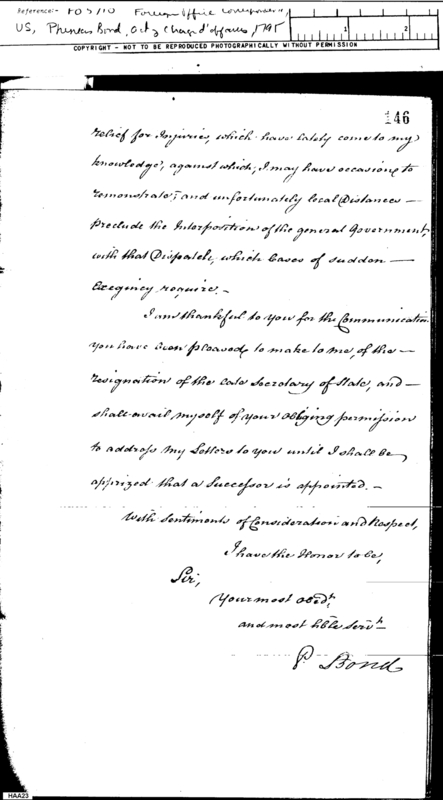 Reference:- FO 5/10 Foreign Office Correspondence,
US, Phineas Bond, actg Chargé d'affaires, 1795
1 2
COPYRIGHT - NOT TO BE REPRODUCED PHOTOGRAPHICALLY WITHOUT PERMISSION
146
relief for Injuries, which have lately come to my
knowledge, against which, I may have occasion to
remonstrate; and unfortunately local Distances —
preclude the Interposition of the general Government,
with that Dispatch, which Cases of sudden —
Exegincy require. —
I am thankful to you for the Communication
you have been pleased to make to me, of the —
resignation of the late Secretary of State, and —
shall avail myself of your obliging permission
to address my Letters to you until I shall be
apprized that a Successor is appointed. —
With Sentiments of Consideration and Respect,
I have the Honor to be,
Sir,
Your most obedt.
and most hble servt
P. Bond
HAA23